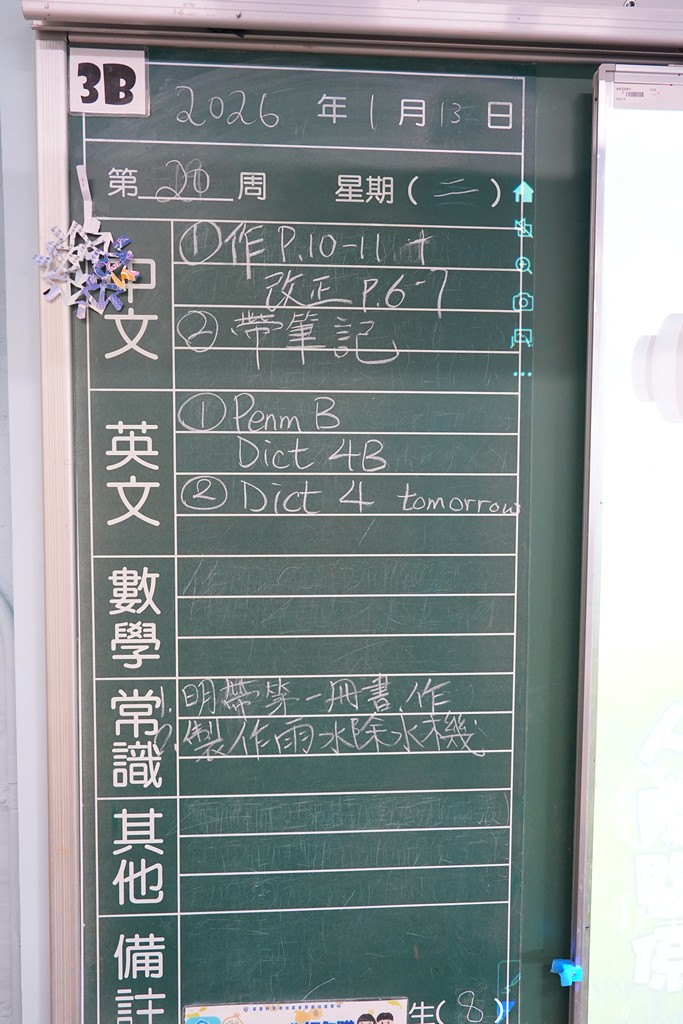 3B
2026 年 1 月 13 日
第 20 周 星期 ( 二 )
中文
① 作 P.10-11 +
改正 P.6-7
② 帶筆記
英文
① Penm B
Dict 4B
② Dict 4 tomorrow
數學
常識
1. 明帶第一冊書、作
2. 製作雨水除水機
其他
備註
生( 8 )